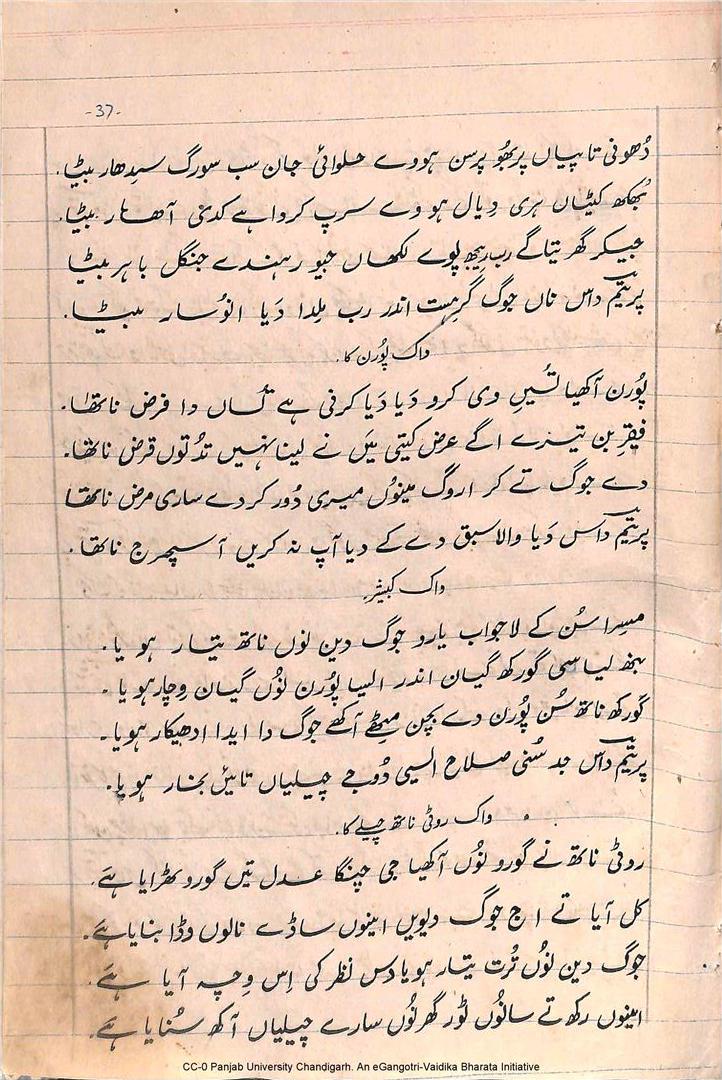 -37-
دُھونی تاپیاں پربھُو پرسن ہووے حلوائی جان سب سورگ سِدھار بیٹا۔
بُھکھ کٹیاں ہری دِیال ہووے سرپ کرداہے کدنی آھار بیٹا۔
جیکر گھر تیاگے رب ریجھ پوے لکھاں جیو رہندے جنگل باہر بیٹا
پریتم داس ناں جوگ گرہست اندر رب مِلدا دَیا انوُسار بیٹا۔
واک پوُرن کا۔
پوُرن آکھیا تسُیں وی کرو دَیا دَیا کرنی ہے تسُاں دا فرض ناتھا۔
فقیر بن تیرے اگے عرض کیتی میَں نے لینا نہیں تدُتوں قرض ناتھا۔
دے جوگ تے کر اروگ مینوُں میری دُور کردے ساری مرض ناتھا
پریتم داس دَیا والا سبق دے کے دیا آپ نہ کریں آسچرج ناتھا۔
واک کبیشر
مسِرا سُن کے لاجواب یارو جوگ دین نوں ناتھ تیار ہویا۔
بجھ لیا سی گورکھ گیان اندر ایسا پوُرن نوُں گیان وچار ہویا۔
گورکھ ناتھ سُن پوُرن دے بچن مِٹھے آکھے جوگ دا ایدا ادھیکار ہویا۔
پریتم داس جد سُنی صلاح ایسی دُوجے چیلیاں تائیں بخار ہویا۔
واک روٹی ناتھ چیلے کا۔
روٹی ناتھ نے گورو نوُں آکھیا جی چنگا عدل تیں گورو بھڑایا ہَے۔
کل آیا تے اج جوگ دیویں اینوں ساڈے نالوں وڈا بنایا ہے۔
جوگ دین نوُں تُرت تیار ہویا دس نظر کی اِس وِچہ آیا ہے۔
اینوں رکھ تے سانوُں ٹور گھر نوُں سارے چیلیاں آکھ سُنایا ہے۔
CC-0 Panjab University Chandigarh. An eGangotri-Vaidika Bharata Initiative